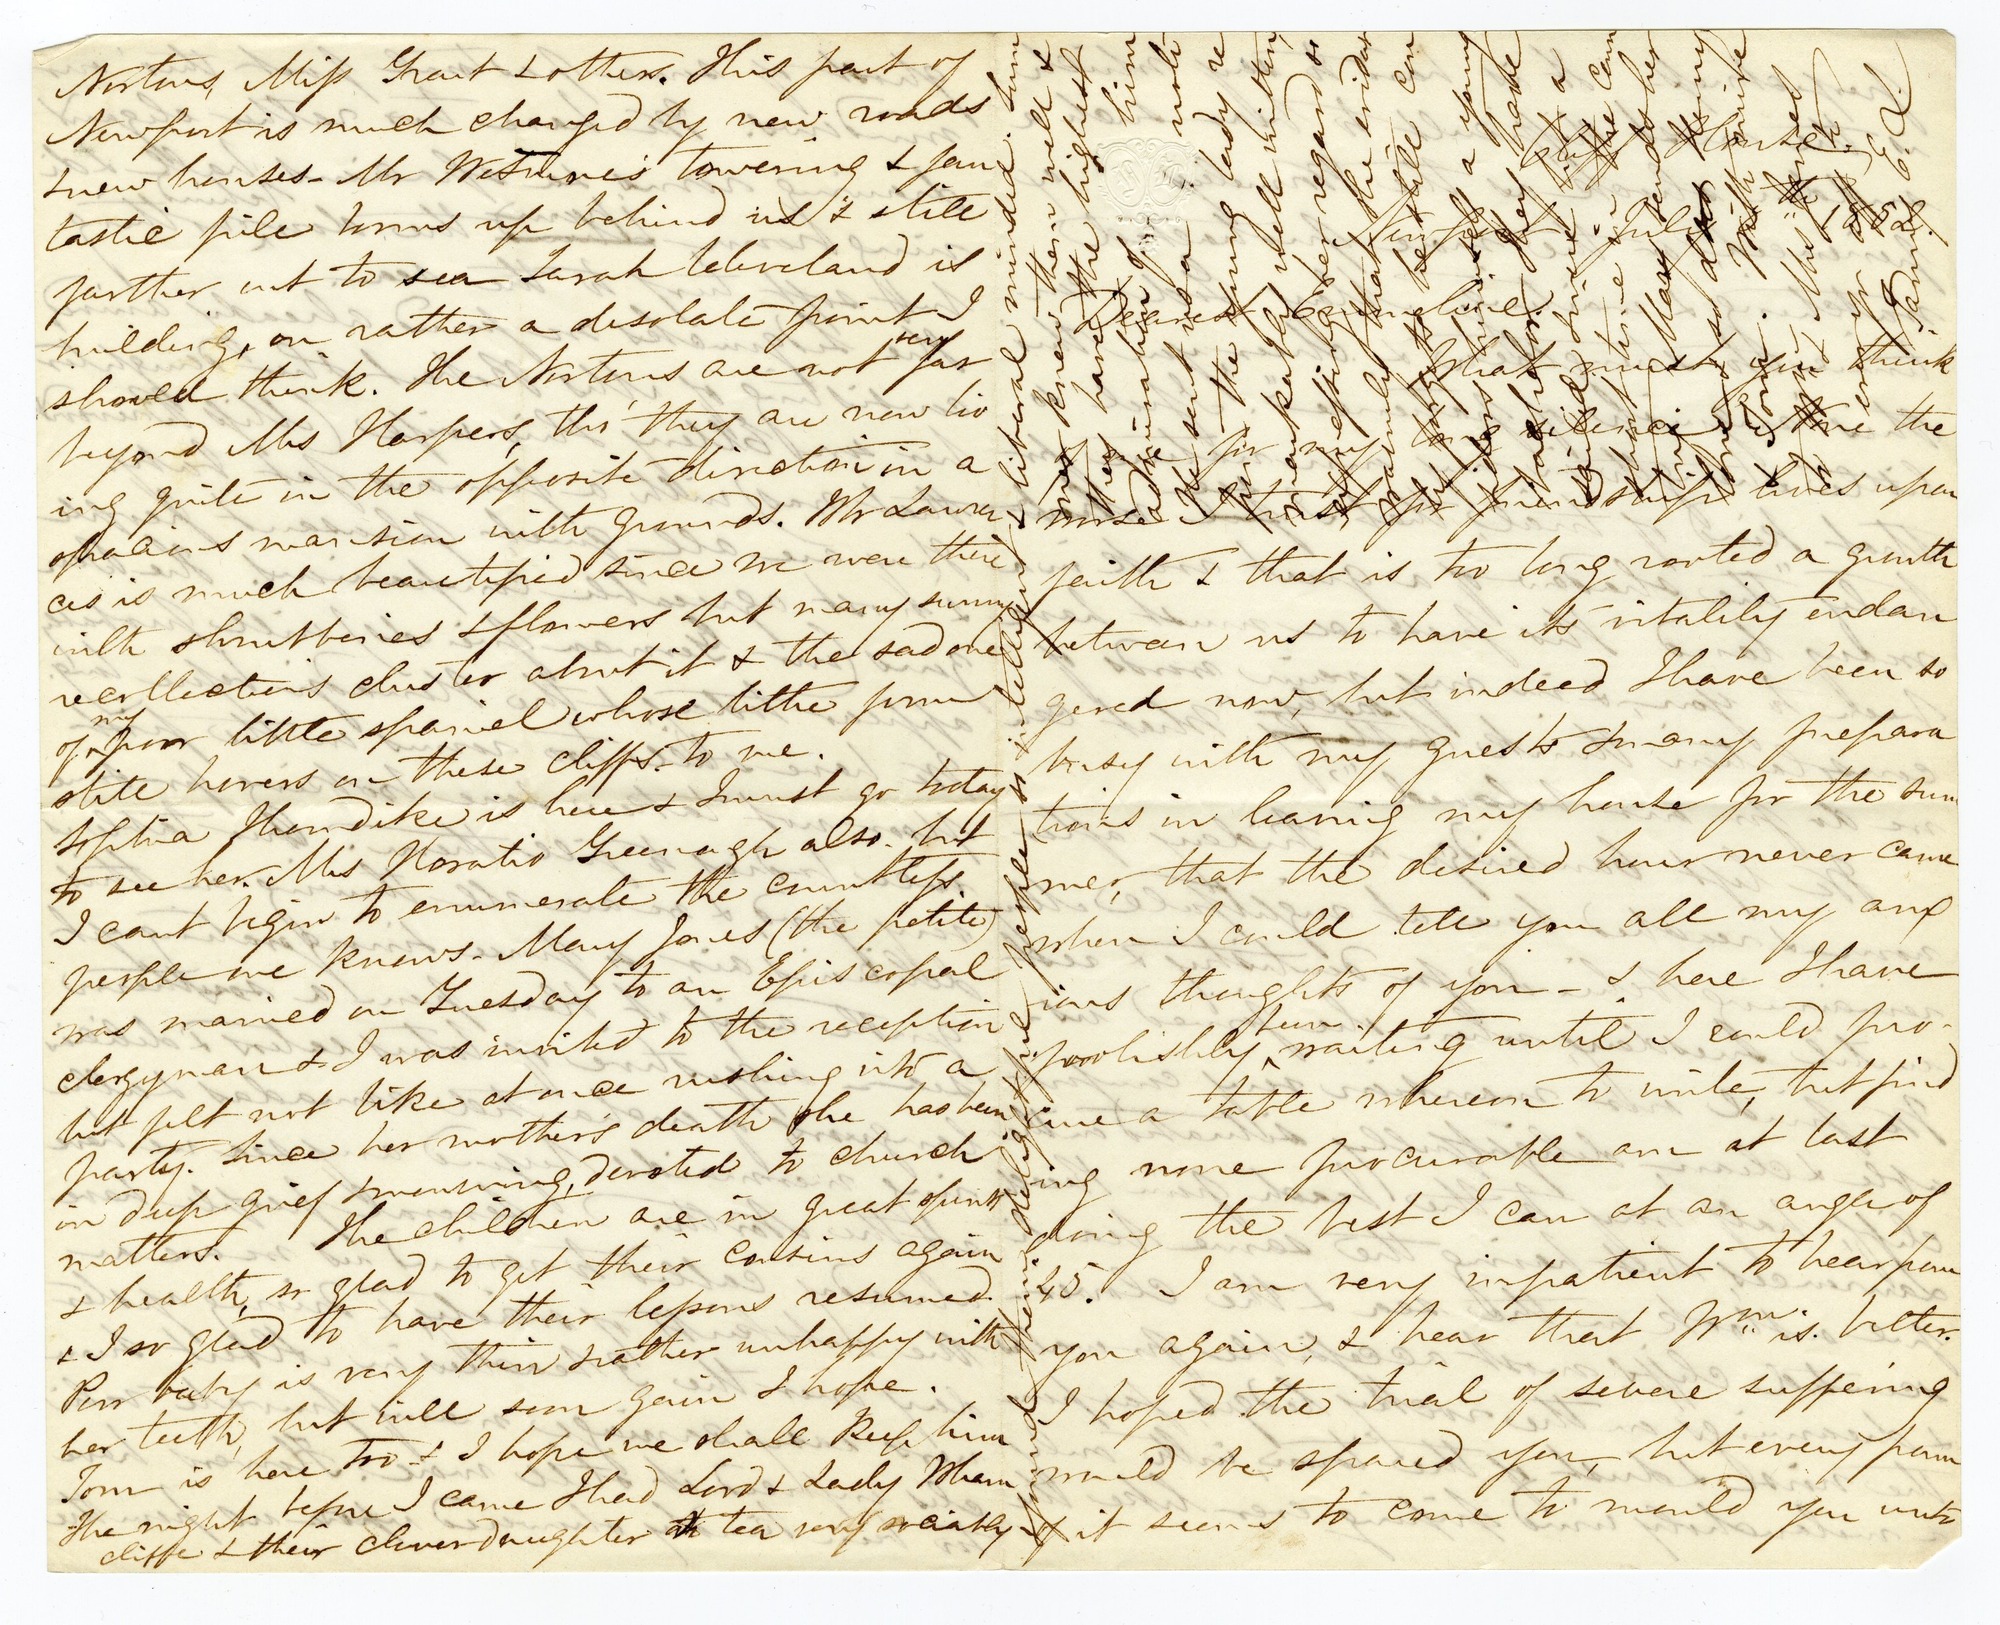 Nortons, Miss Grant & others. This part of
Newport is much changed by new roads
& new houses - Mr Wetmore's towering & fan
tastic pile looms up behind us & still
farther out to sea Sarah Cleveland is
building, on rather a desolate point I
should think. The Nortons are not very far
beyond Mrs Harpers, tho' they are now liv
ing quite in the opposite direction in a
spacious mansion with grounds. Mr Lawren
ces is much beautified since we were there
with shrubberies & flowers but many sunny
recollections cluster about it & the sad one
of my poor little spaniel whose little form
still hovers on these cliffs - to me.
Sophia Thorndike is here & I must go today
to see her. Mrs Horatio Greenough also. but
I cant begin to enumerate the countless
people one knows - Mary Jones (the petite)
was married on Tuesday to an Episcopal
clergyman & I was invited to the reception
but felt not like at once rushing into a
party. Since her mother's death she has been
in deep grief & mourning, devoted to church
matters. The children are in great spirits
& health, so glad to get their cousins again
& I so glad to have their lessons resumed.
Poor baby is very thin & rather unhappy with
her teeth, but will soon gain I hope.
Tom is here too & I hope we shall keep him
The night before I came I had Lord & Lady Wharn
cliffe & their clever daughter at tea very sociably
& found them delightful people so intelligent & liberal minded. Sum
ner knew them well &
they have the highest
admiration for him
Cliff House.
Newport July 1852.
Dearest Emmeline.
What must you think
of me for my long silence - None the
worse I trust for friendship lives upon
faith & that is too long rooted a growth
between us to have its vitality endan
gered now, but indeed I have been so
busy with my guests & many prepara
tions in leaving my house for the sum
mer, that the desired hour never came
when I could tell you all my anx
ious thoughts of you - & here I have
foolishly been waiting until I could pro-
cure a table whereon to write, but find
ing none procurable am at last
doing the best I can at an angle of
45. I am very impatient to hear from
you again, & hear that Wm. is better.
I hoped the trial of severe suffering
would be spared you, but every form
of it seems to come to mould you unto